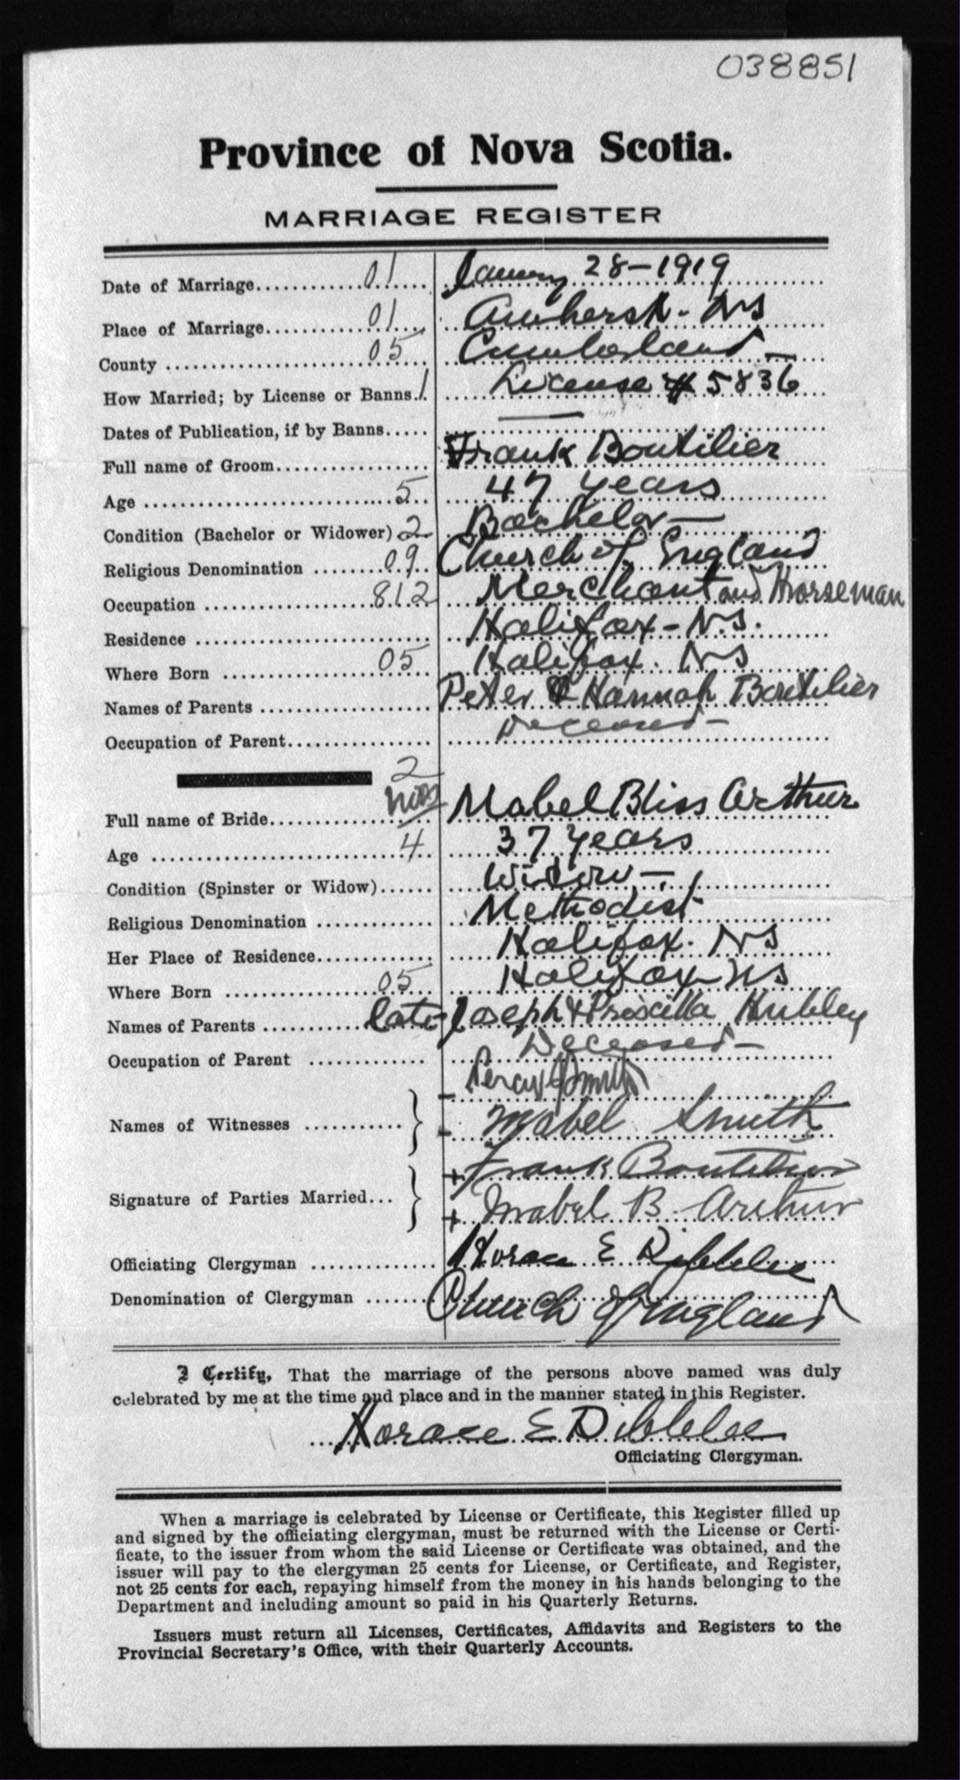 038851
Province of Nova Scotia.
MARRIAGE REGISTER
Date of Marriage 01 January 28-1919
Place of Marriage 01 Amherst - NS
County 05 Cumberland
How Married; by License or Banns 1 License # 5836
Dates of Publication, if by Banns —
Full name of Groom Frank Boutilier
Age 5 47 years
Condition (Bachelor or Widower) 2 Bachelor —
Religious Denomination 09 Church of England
Occupation 812 Merchant and Horseman
Residence Halifax - N.S.
Where Born 05 Halifax. NS
Names of Parents Peter & Hannah Boutilier
Occupation of Parent Deceased -
2
Full name of Bride Mabel Bliss Arthur
Age 4 37 years
Condition (Spinster or Widow) Widow —
Religious Denomination Methodist
Her Place of Residence Halifax. NS
Where Born 05 Halifax NS
Names of Parents late Joseph & Priscilla Hubley
Occupation of Parent Deceased -
Percy Smith
Names of Witnesses Mabel Smith
+ Frank Boutilier
Signature of Parties Married
+ Mabel B. Arthur
Officiating Clergyman Horace E Dibblee
Denomination of Clergyman Church of England
I Certify, That the marriage of the persons above named was duly
celebrated by me at the time and place and in the manner stated in this Register.
Horace E Dibblee
Officiating Clergyman.
When a marriage is celebrated by License or Certificate, this Register filled up
and signed by the officiating clergyman, must be returned with the License or Certi-
ficate, to the issuer from whom the said License or Certificate was obtained, and the
issuer will pay to the clergyman 25 cents for License, or Certificate, and Register,
not 25 cents for each, repaying himself from the money in his hands belonging to the
Department and including amount so paid in his Quarterly Returns.
Issuers must return all Licenses, Certificates, Affidavits and Registers to the
Provincial Secretary's Office, with their Quarterly Accounts.